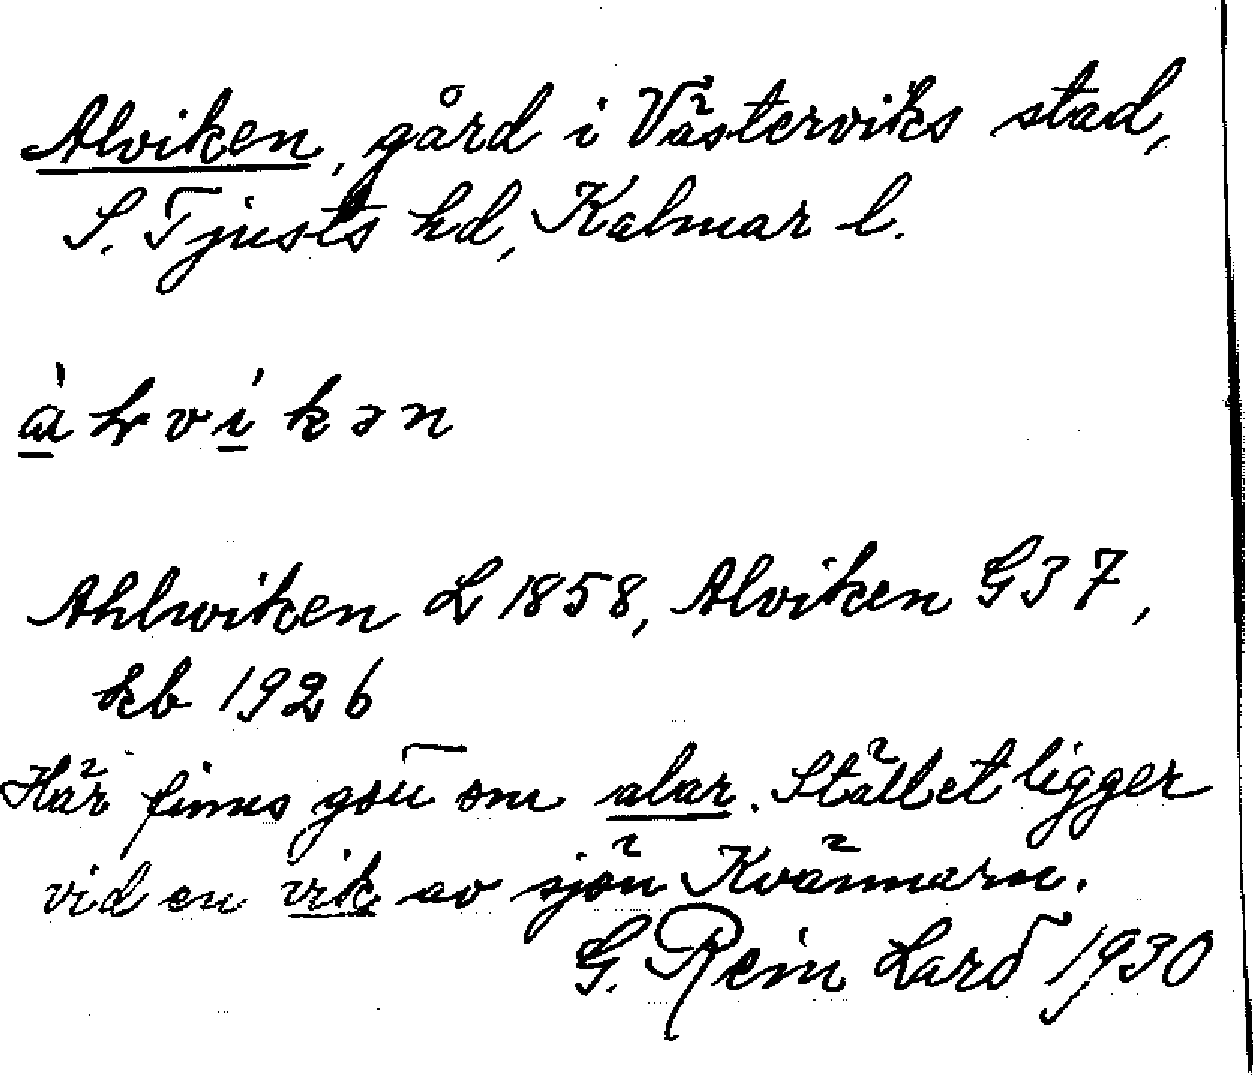 Alviken, gård i Västerviks stad,
S. Tjusts hd, Kalmar l.
àlvíkən
Ahlwiken L 1858, Alviken G 37,
kb 1926
Här finns gott om alar. Stället ligger
vid en vik av sjön Kvännarn.
G. Rein Lard 1930